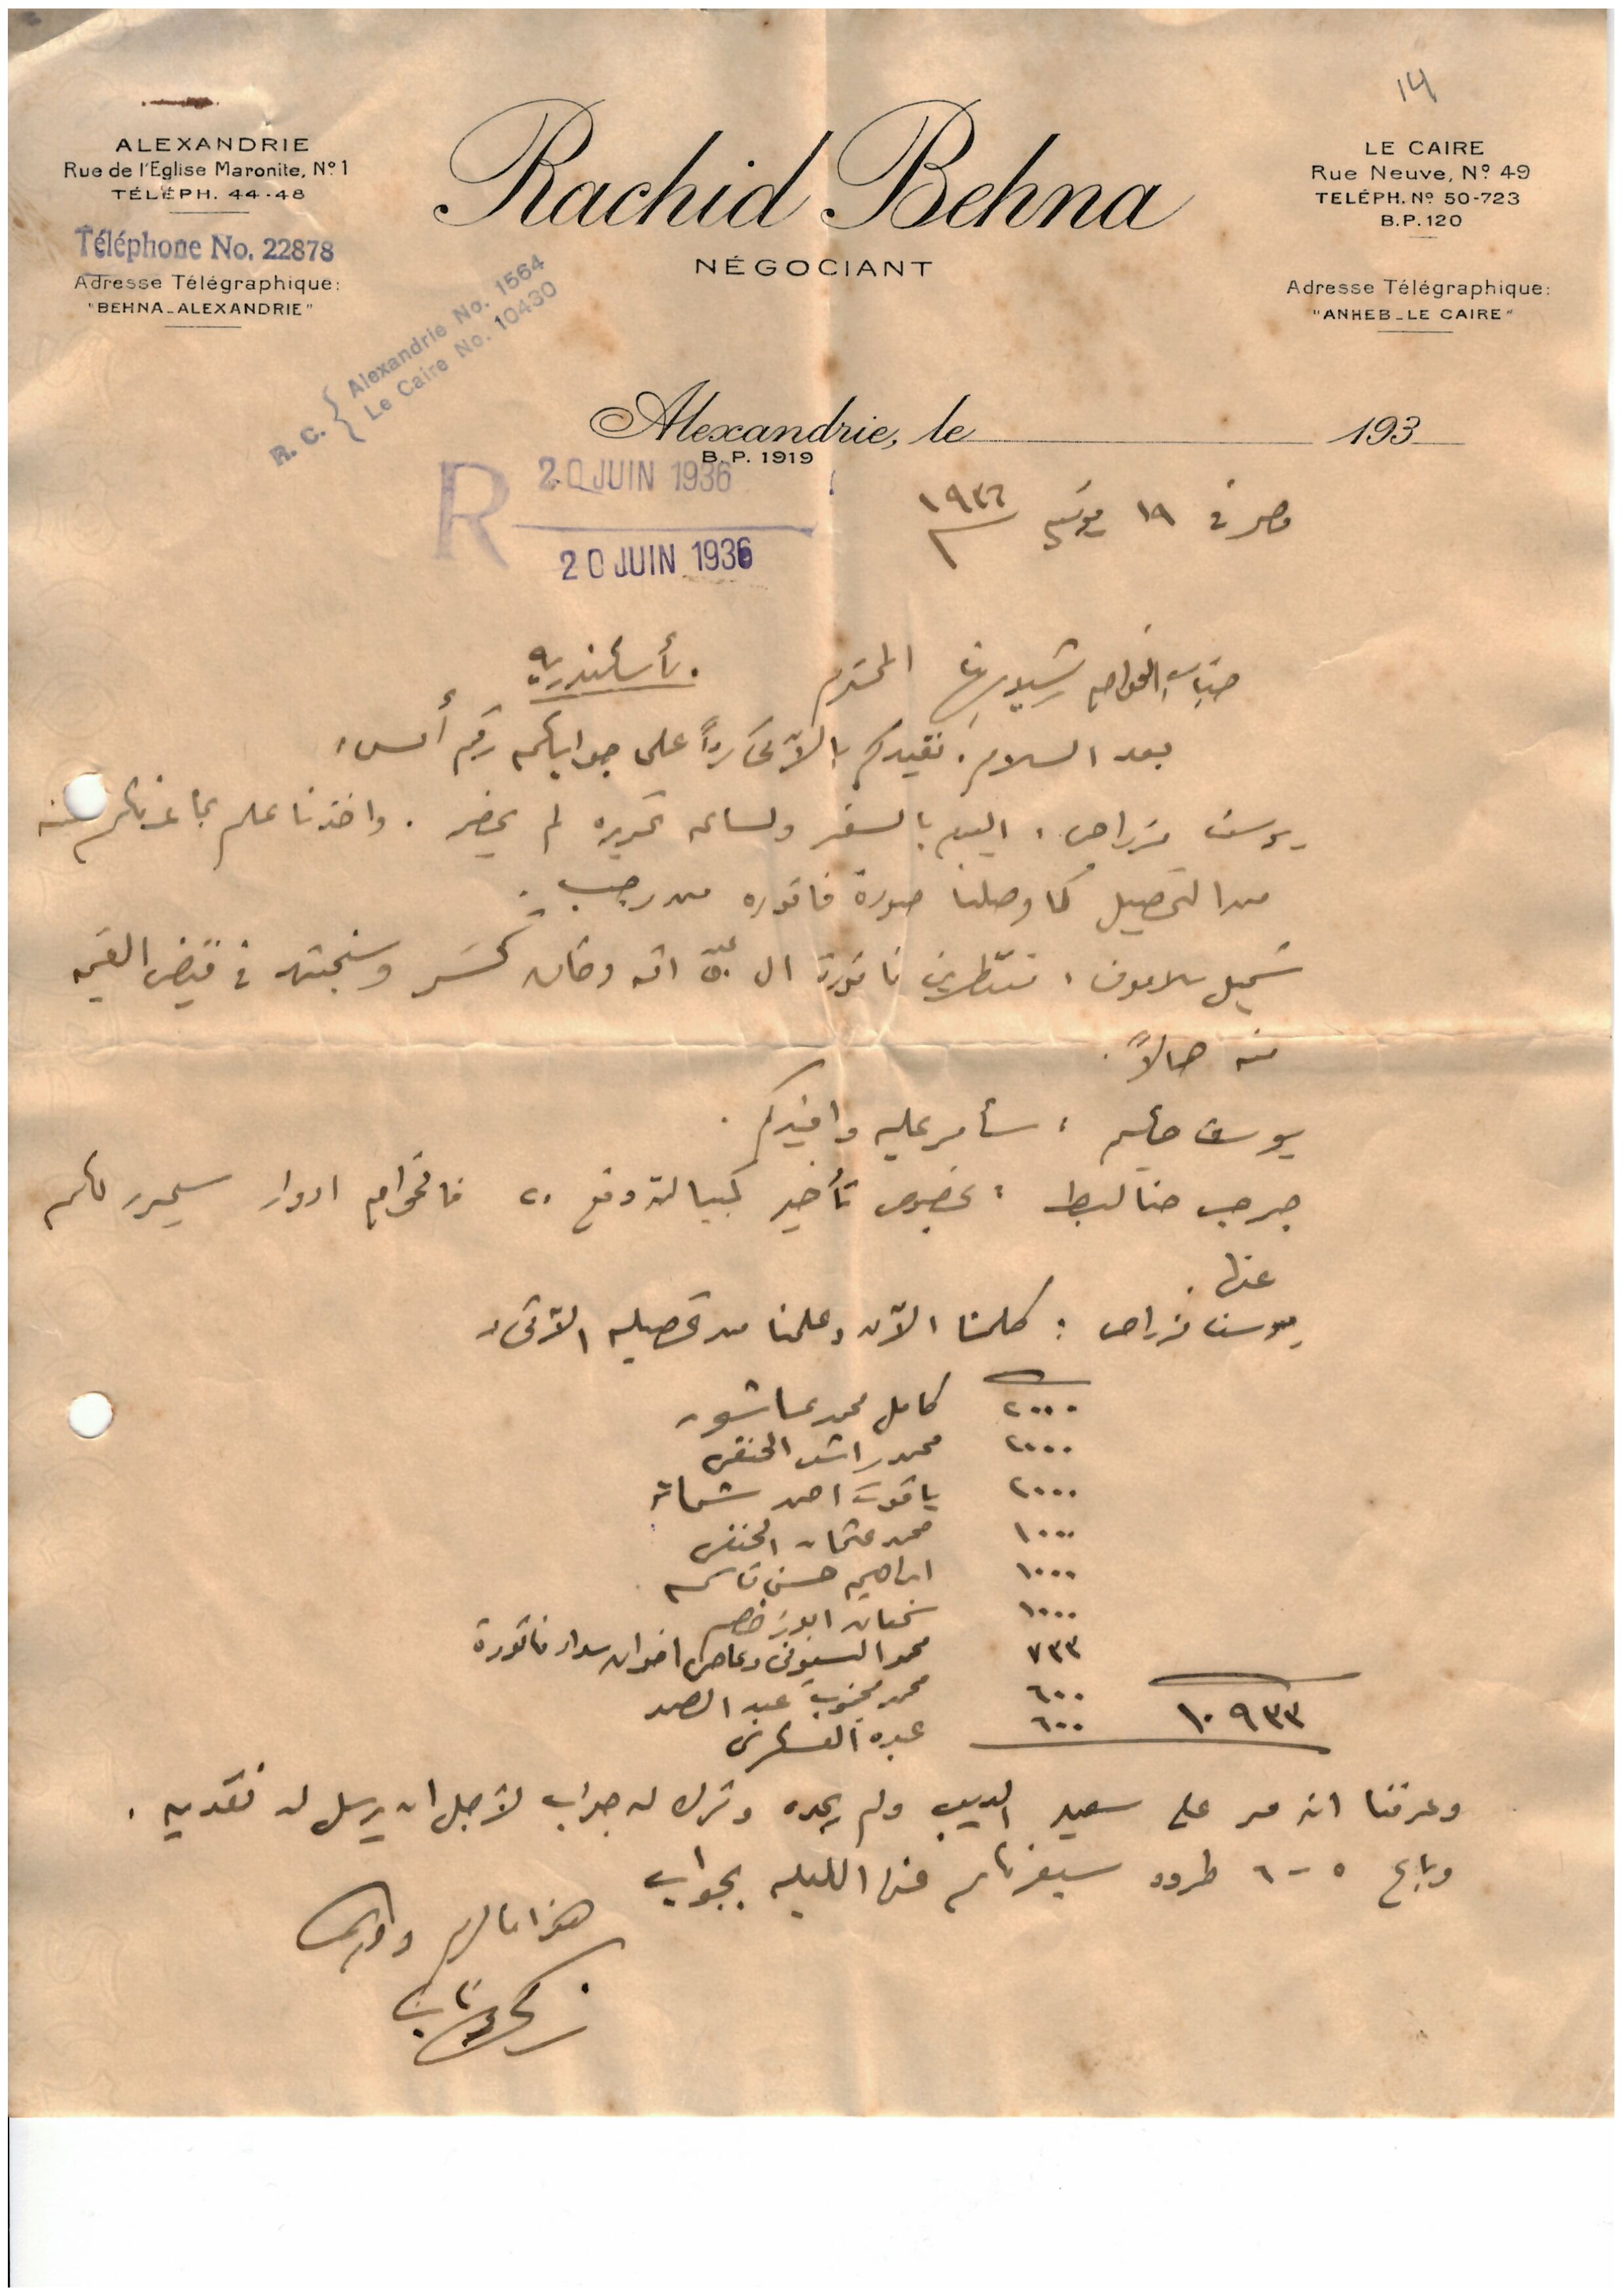 14
ALEXANDRIE
Rue de l'Eglise Maronite, Nº 1
TÉLÉPH. 44-48
Téléphone No. 22878
Adresse Télégraphique:
"BEHNA_ALEXANDRIE"
Rachid Behna
NÉGOCIANT
LE CAIRE
Rue Neuve, Nº 49
TELÉPH. Nº 50-723
B.P. 120
Adresse Télégraphique:
"ANHEB_LE CAIRE"
R. C. { Alexandrie No. 1564
Le Caire No. 10430
Alexandrie, le 193
B. P. 1919
R 20 JUIN 1936
20 JUIN 1936
مصر في ١٩ يونيه ١٩٣٦
جناب الخواجه رشيد بهنا المحترم بأسكندريه
بعد السلام. نفيدكم بالآتى رداً على جوابكم رقم أمس:
يوسف : اليوم بالسفر ولساعه تحريره لم يحضر . واخذنا علم بما عرفتكم عنه
من التحصيل كما وصلنا صورة فاتوره من رجب .
شميل : منتظرين فاتورة ال اقه دخان كسر وسنجتهد في قبض القيمه
منه حالاً .
يوسف : سأمر عليه وافيدكم .
جرجس حنا : بخصوص تأخير كمبيالة دفع ٢٠ فالخواجه ادوار سيحرر لكم
عنها .
يوسف : كلمنا الآن وعلمنا من تحصيله الآتى :
٢٠٠٠ كامل محمد عاشور
٢٠٠٠ محمد راشد الحنفى
٢٠٠٠ ياقوت احمد شحاته
١٠٠٠ محمد عثمان الحنفى
١٠٠٠ ابراهيم حسن قاسم
١٠٠٠ ابو
٧٣٣ محمد البسيونى اخوان سداد فاتورة
٦٠٠ محمد عبد الصمد
٦٠٠ عبده العسكرى
١٠٩٣٣
وعرفنا انه مر على سعيد الديب ولم يجده وترك له جواب لأجل ان يرسل له نقديه .
وباع ٥ - ٦ طرود سيعرفكم عنها الليله بجواب
هذا ما لزم ودمتم